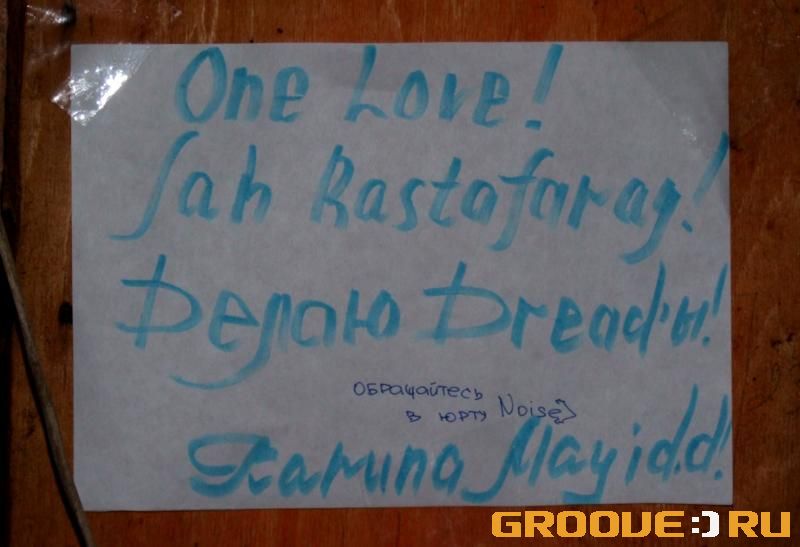 One Love!
Jah Rastafaray!
Делаю Dread'ы!
обращайтесь
в юрту Noise
Mayid.d!
GROOVE:) RU